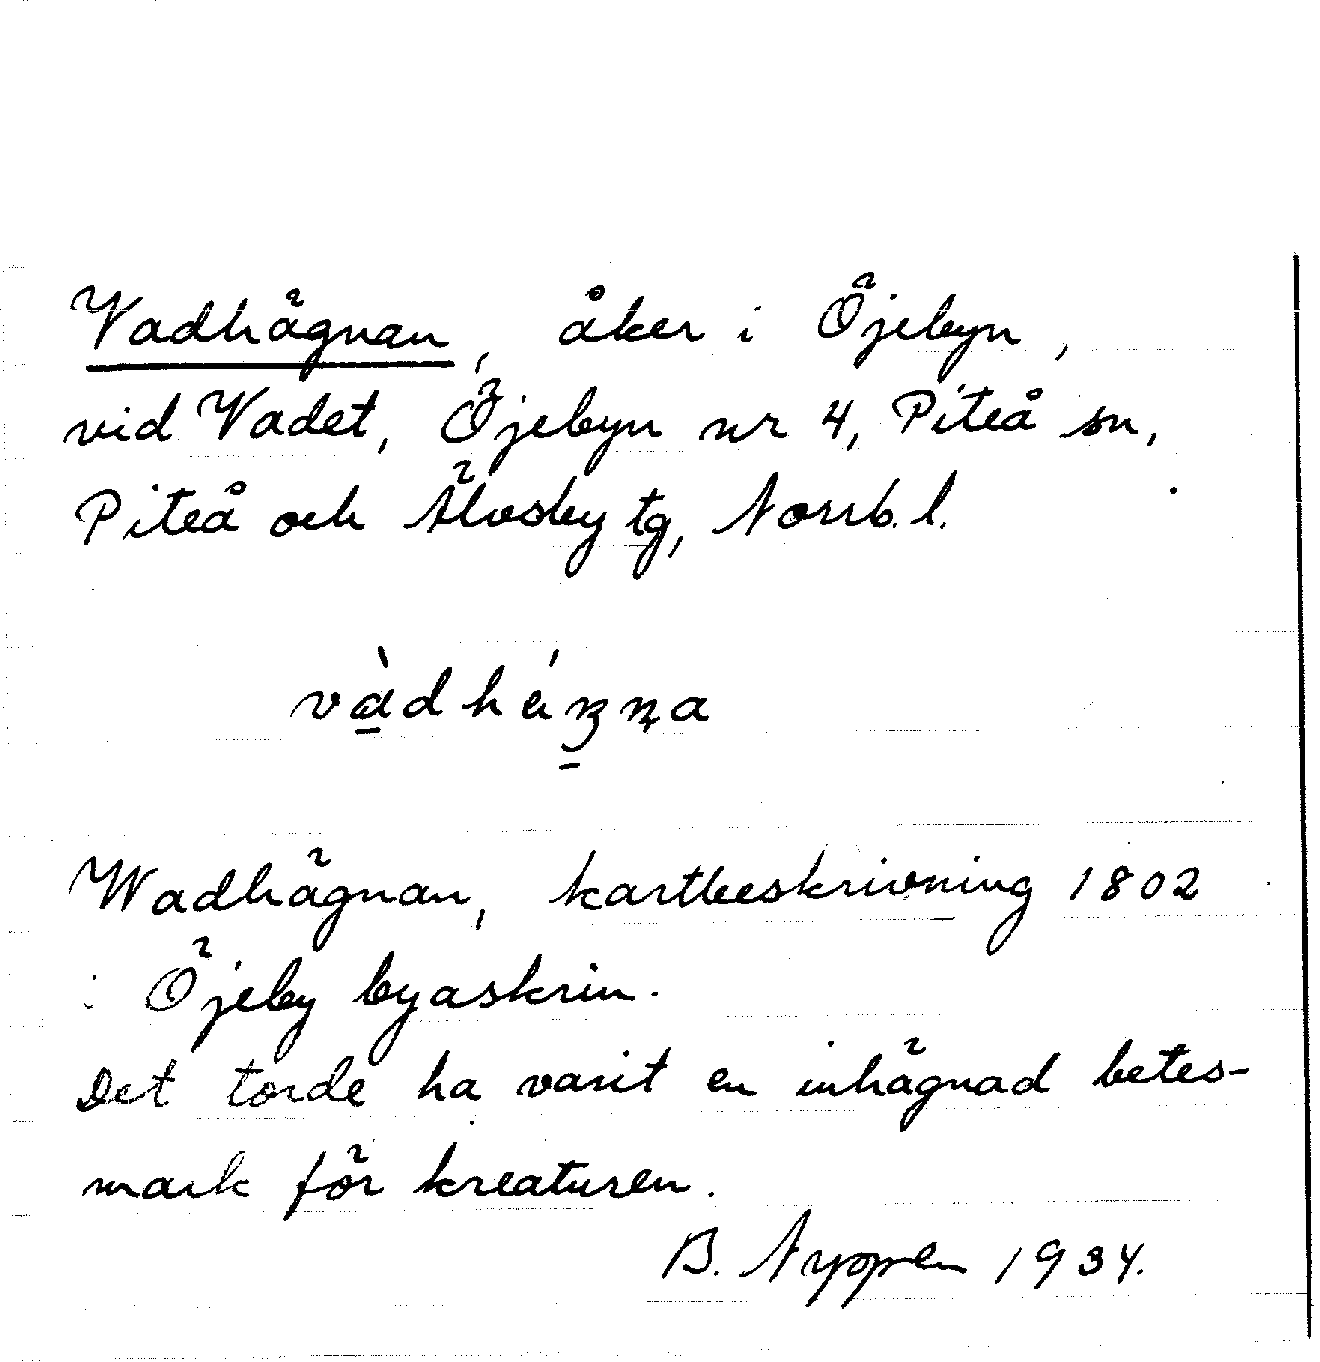 Vadhägnan, åker i Öjebyn,
vid Vadet, Öjebyn nr 4, Piteå sn,
Piteå och Älvsby tg, Norrb. l.
Wadhägnan, kartbeskrivning 1802
i Öjeby byaskrin.
Det torde ha varit en inhägnad betes-
mark för kreaturen.
B. Nyppen 1934.